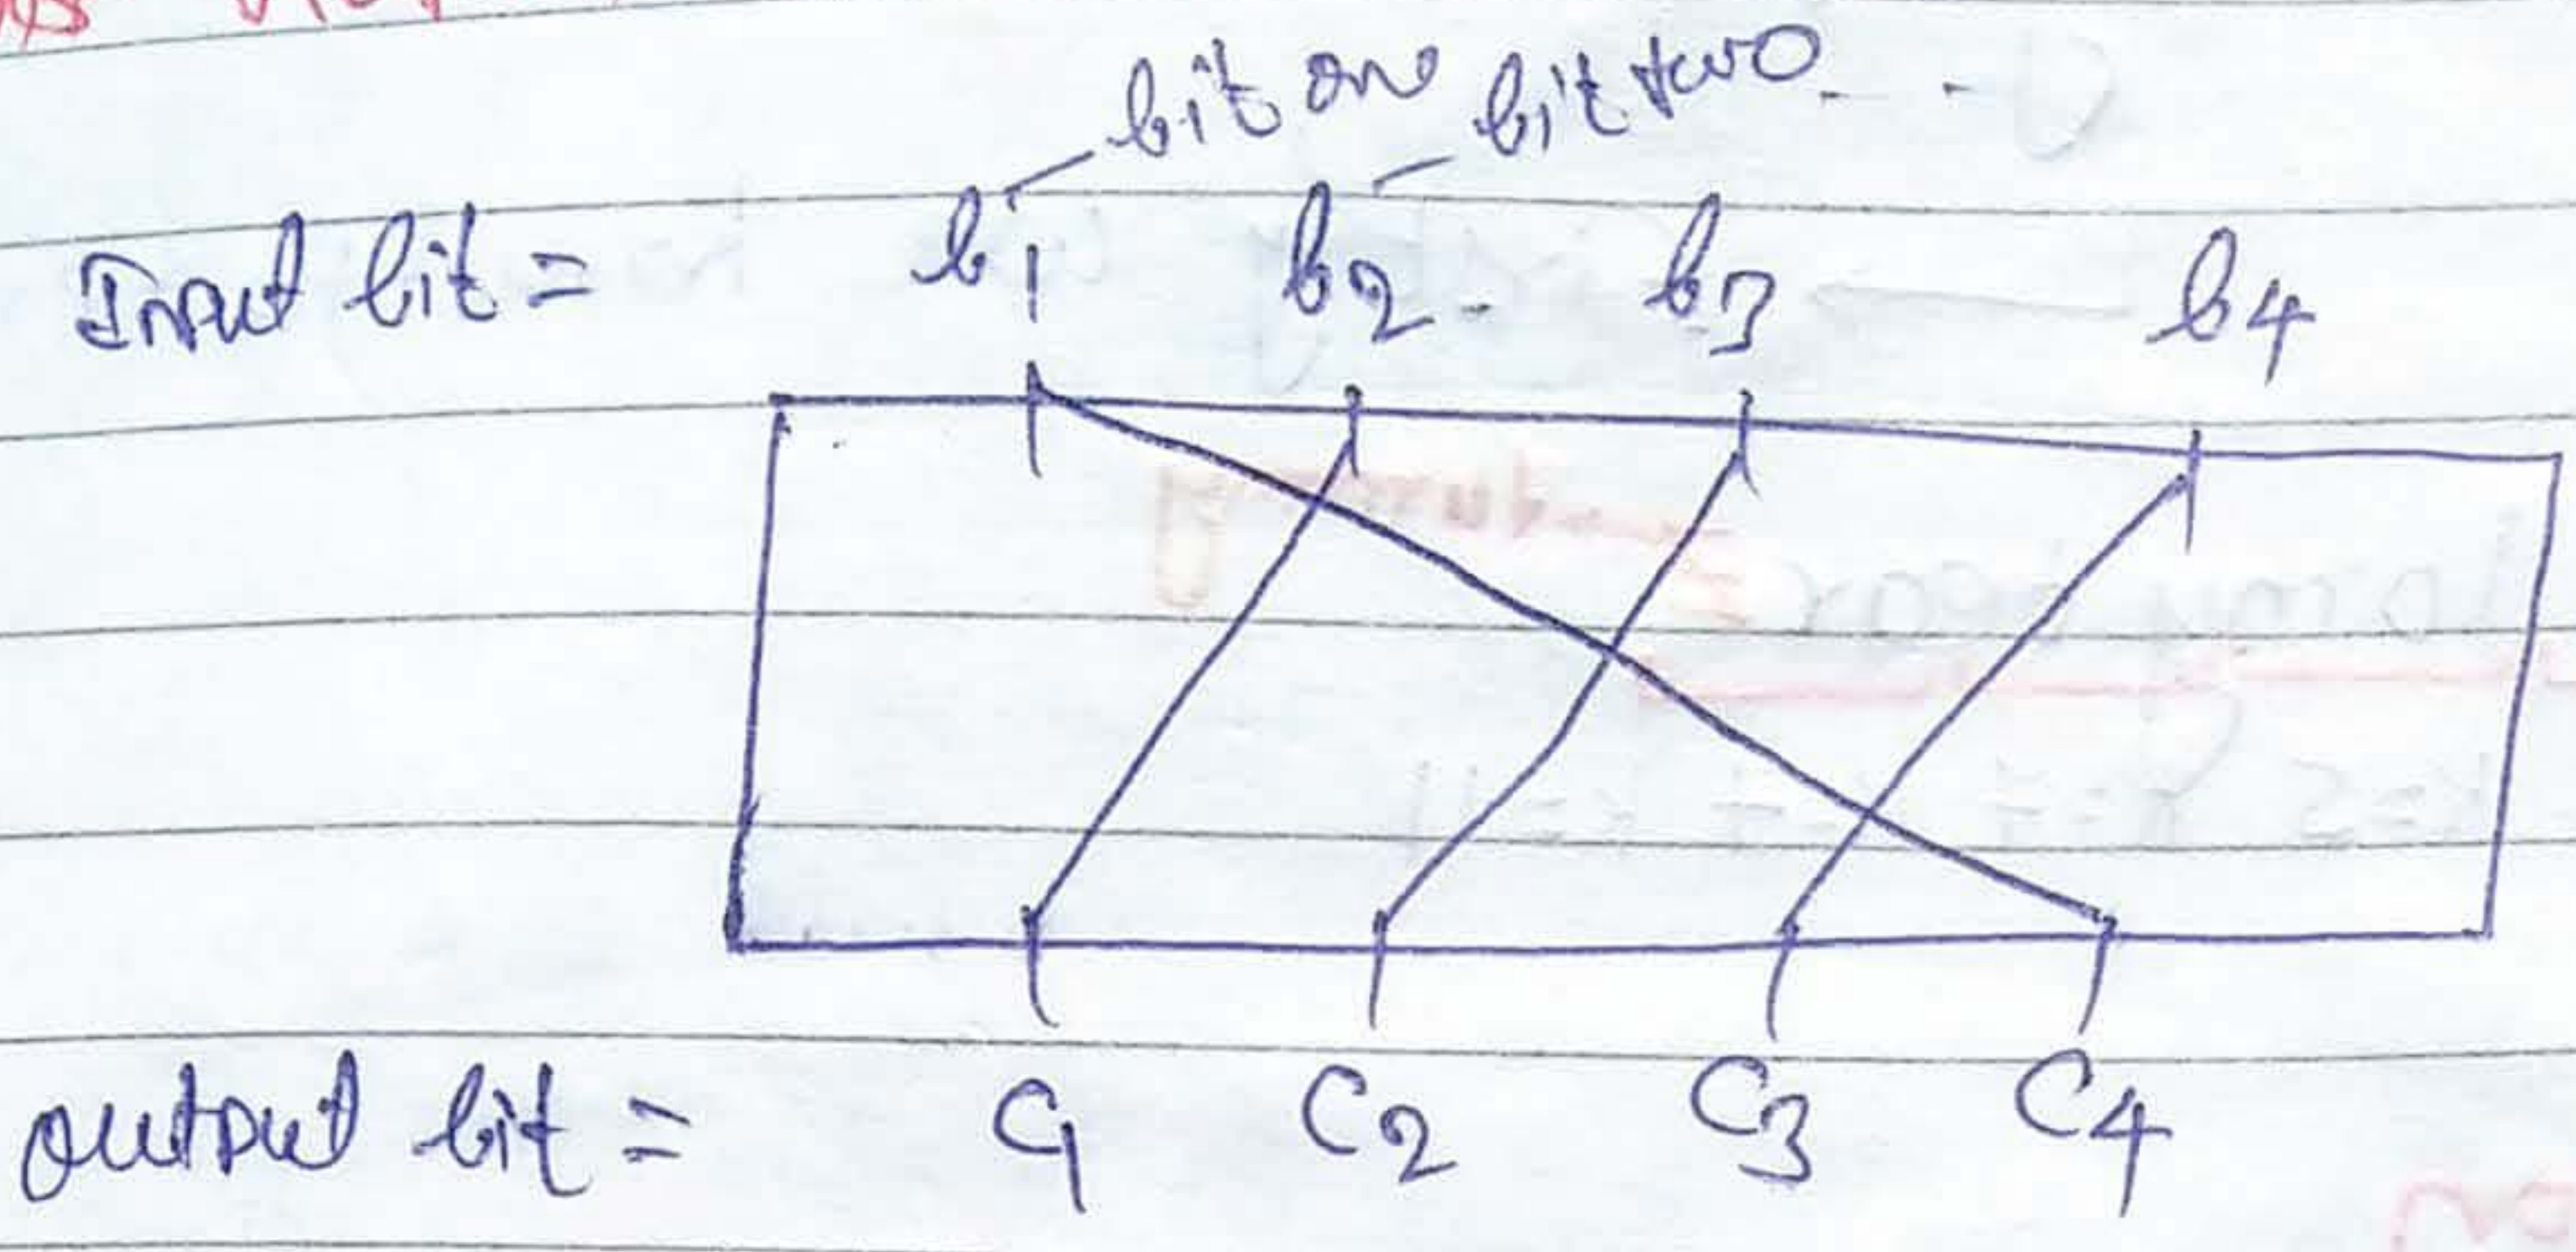 bit one bit two - -
Input bit = b1 b2 - b3 b4
output bit = C1 C2 C3 C4